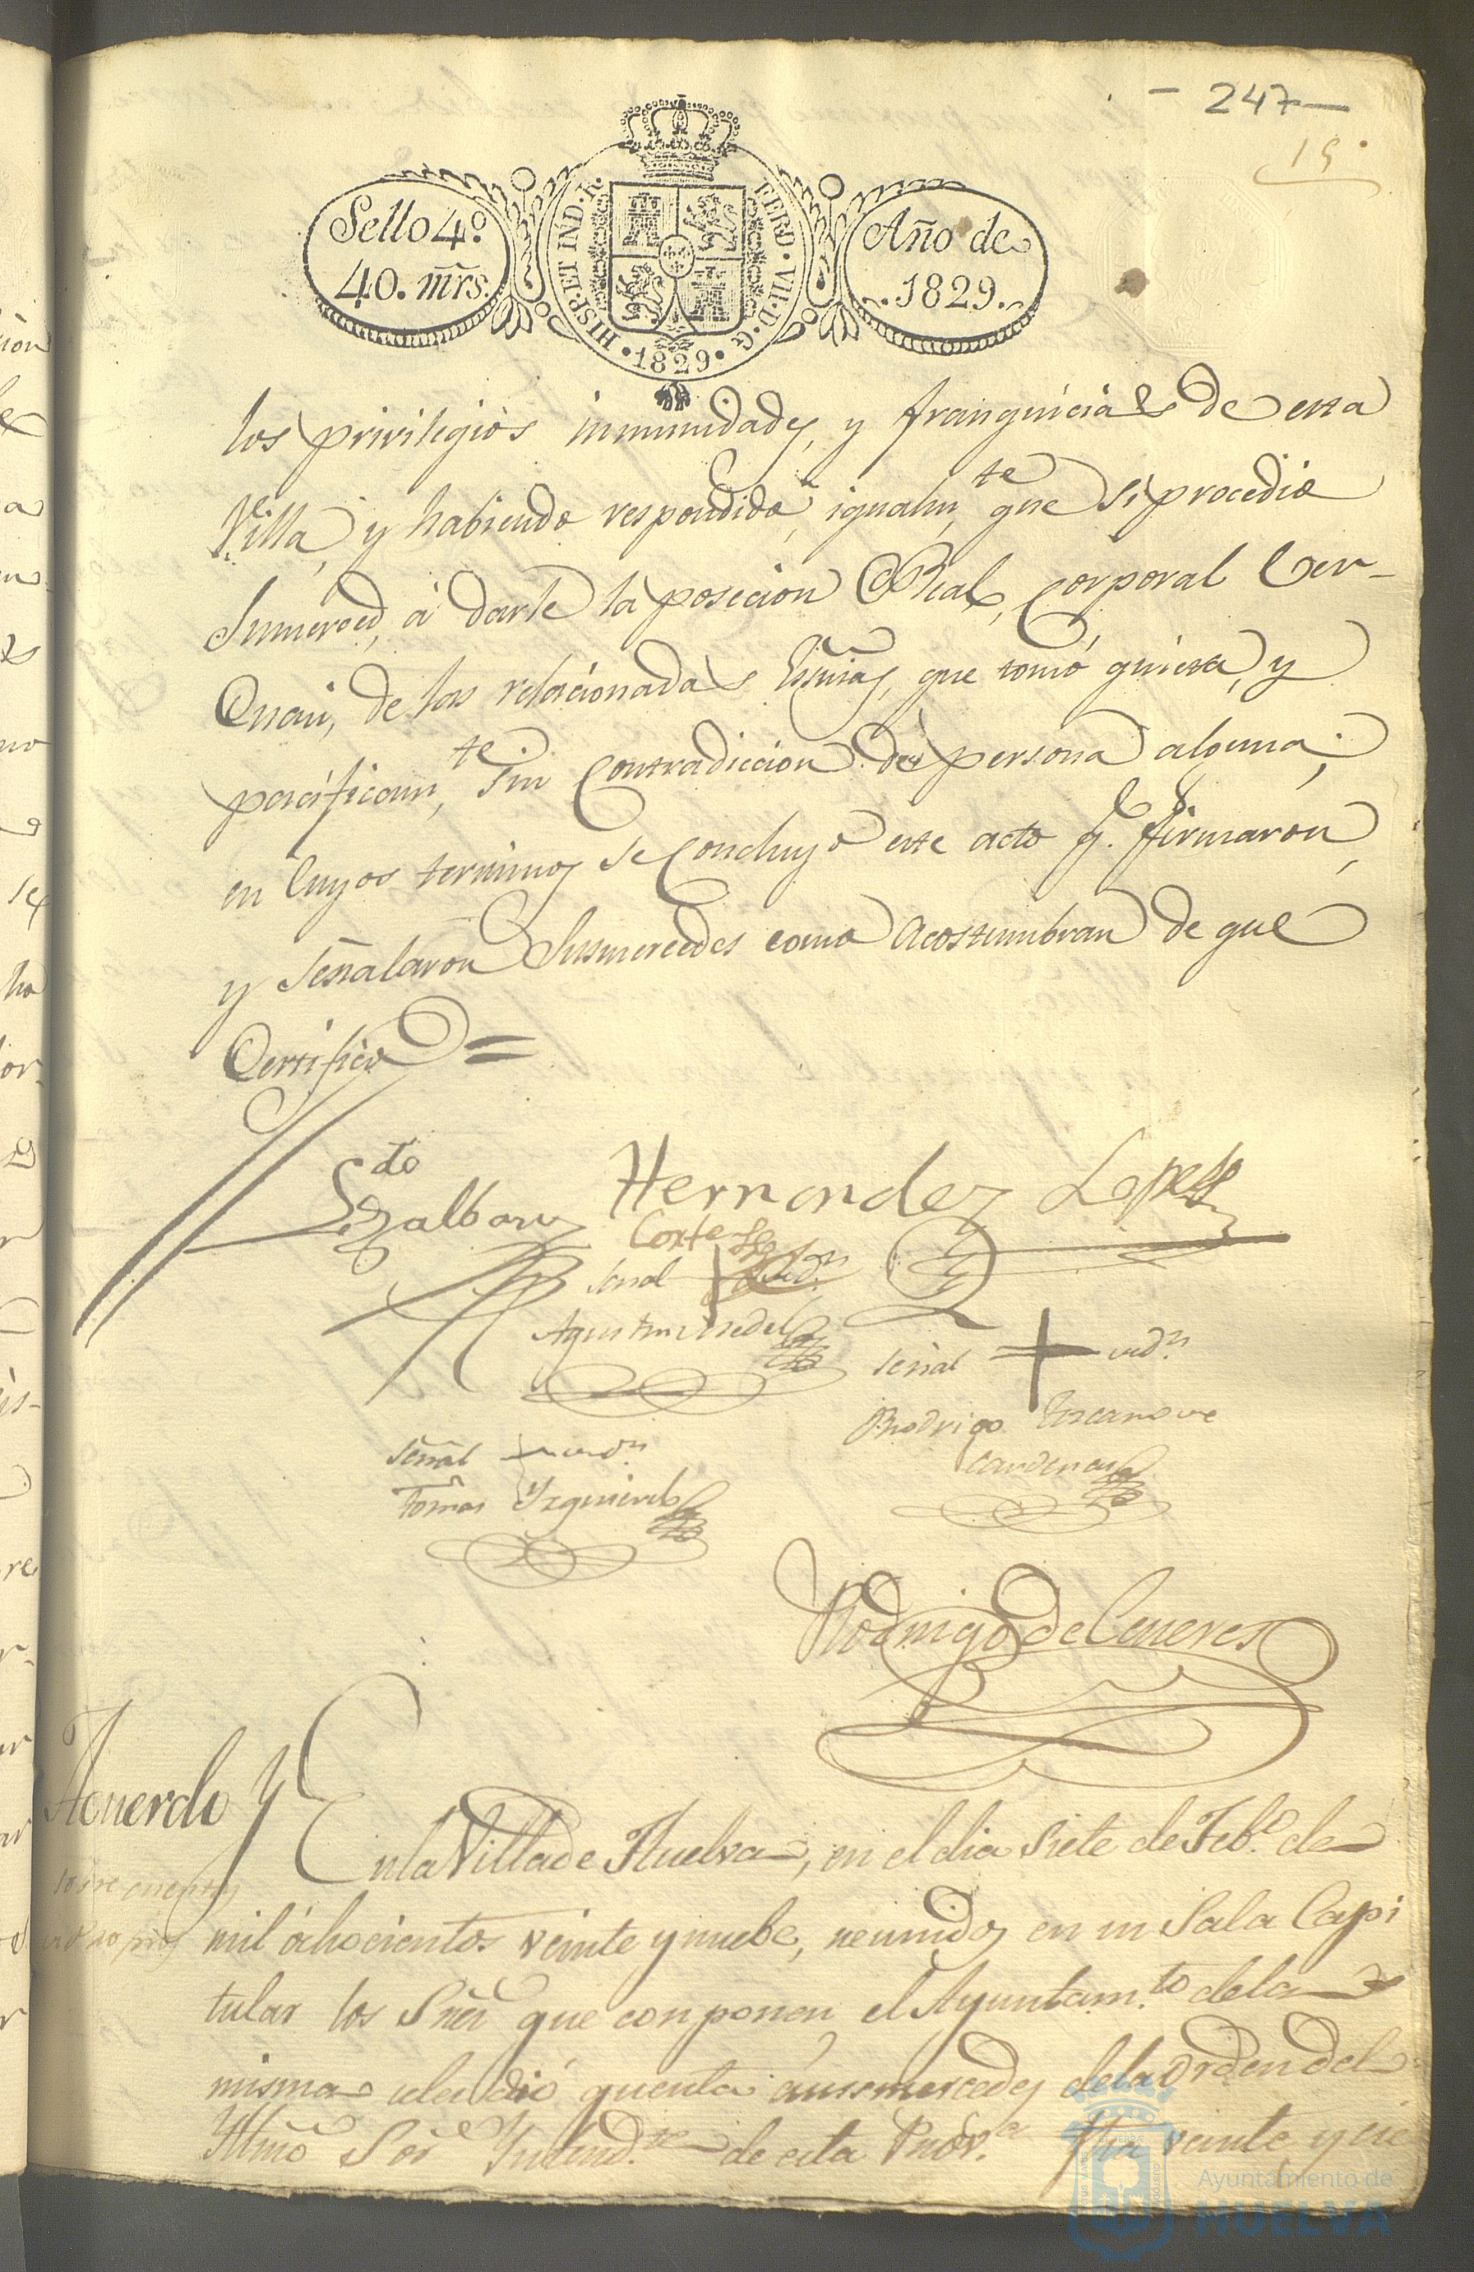 - 247 -
19.
Sello 4.º
40. mrs.
HISP. ET IND. R.
FERD. VII. D. G.
• 1829 •
Año de
1829.
los privilegios inmunidades, y franquicias de esta
Villa, y habiendo respondido, igualmte que si procedio
Sumerced, á darle la posecion Real, Corporal Ver-
Quasi, de las relacionadas que tomó quieta, y
pacificamte sin Contradiccion de persona alguna;
en Cuyos terminos se Concluyó este acto q. firmaron
y señalaron Susmercedes como acostumbran de que
Certifico =
Hernandez Lopez
Cortes
señal + red.n
Agustin
señal + red.n
Rodrigo
Cardenas
señal + red.n
Tomas Yzquierdo
Rodrigo de Ceneres
Acuerdo y
En la Villa de Huelva, en el dia Siete de Feb.o de
mil ôchocientos veinte y nuebe, reunidos en su Sala Capi
tular los Sres que conponen el Ayuntam.to de la
misma se dió quenta ásusmercedes dela orden del
Yllmo Sor Yntend.te de esta Prov.a fha veinte y cie
Ayuntamiento de
HUELVA